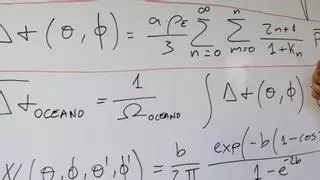 Δt(θ,φ) = a·ρE/3 ∑n=0^∞ ∑m=0^n 2n+1/1+kn P̄
Δtoceano = 1/Ωoceano ∫ Δt(θ,φ)
X/(θ,φ,θ',φ') = b/2π exp(-b(1-cos/1-e^-2b